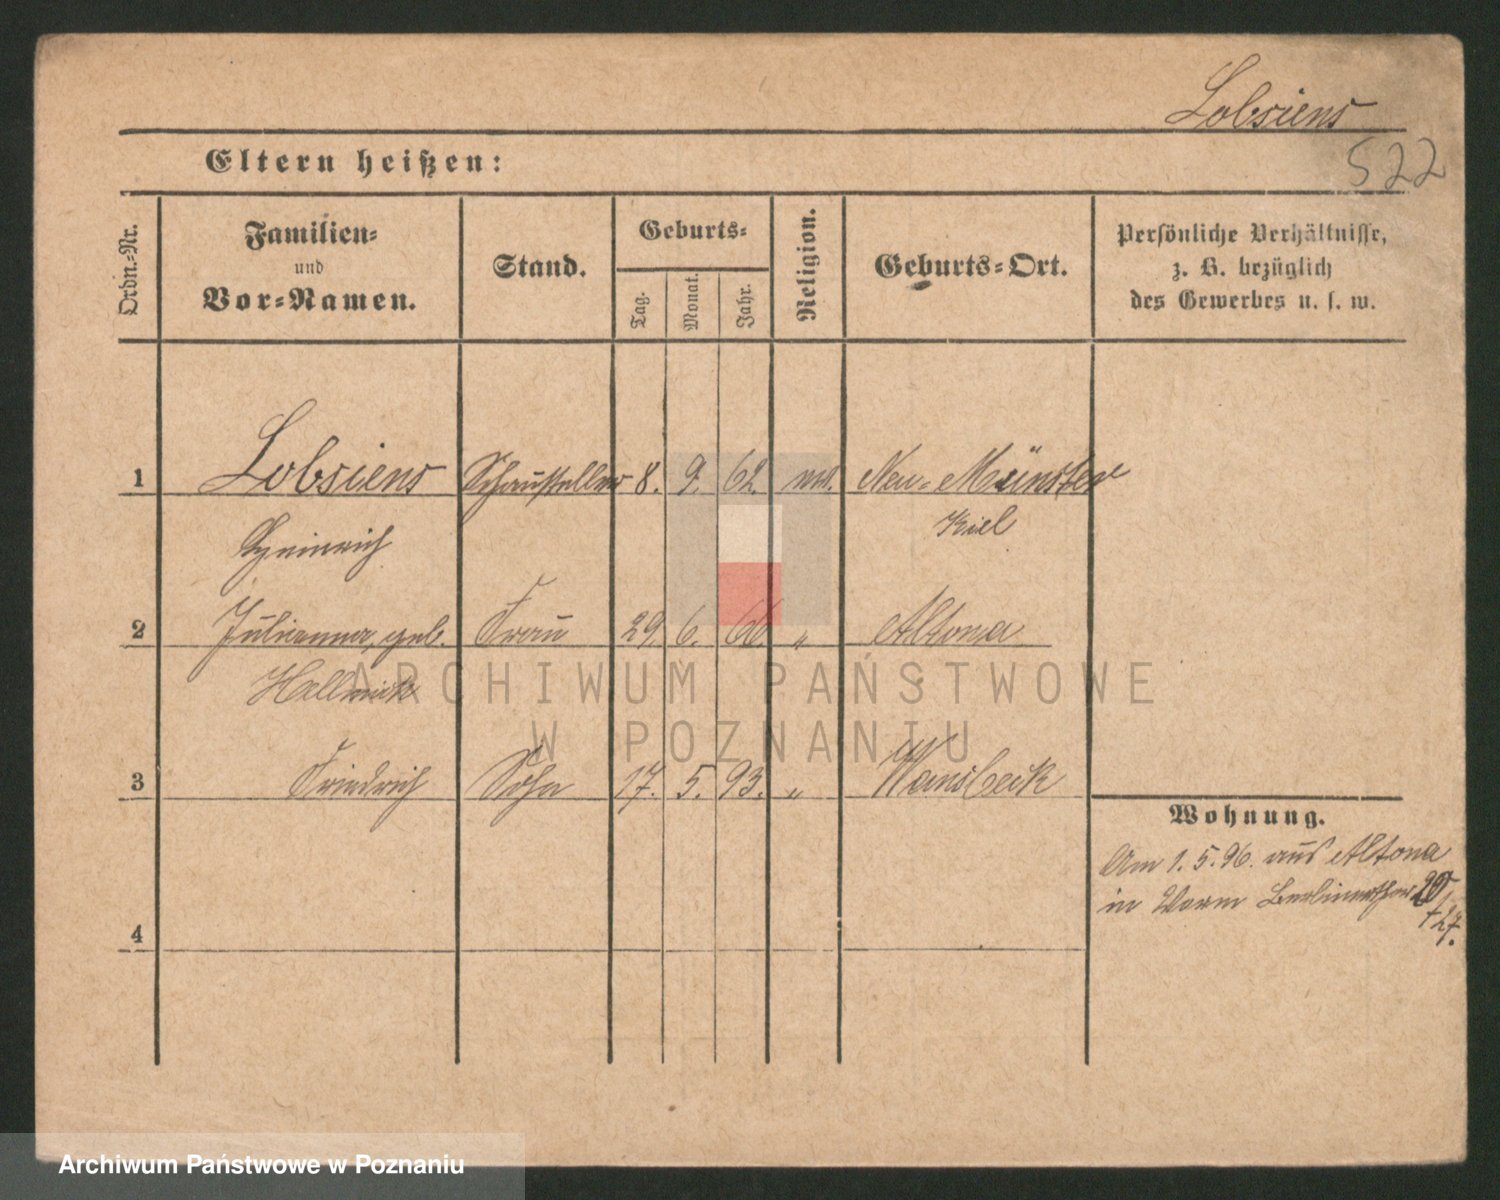 Lobsiens
522
Eltern heißen:
Ordn.-Nr.
Familien-
und
Vor-Namen.
Stand.
Geburts-
Tag.
Monat.
Jahr.
Religion.
Geburts-Ort.
Persönliche Verhältnisse,
z. B. bezüglich
des Gewerbes u. s. w.
1 Lobsiens Schausteller 8. 9. 62. Neu-Münster
Heinrich Kiel
2 Julianna, geb. Frau 29. 6. 66. „ Altona
3 Friedrich Sohn 17. 5. 93. „ Wansbeck
4
Wohnung.
Am 1.5.96. aus Altona
in
+27.
ARCHIWUM PAŃSTWOWE
W POZNANIU
Archiwum Państwowe w Poznaniu